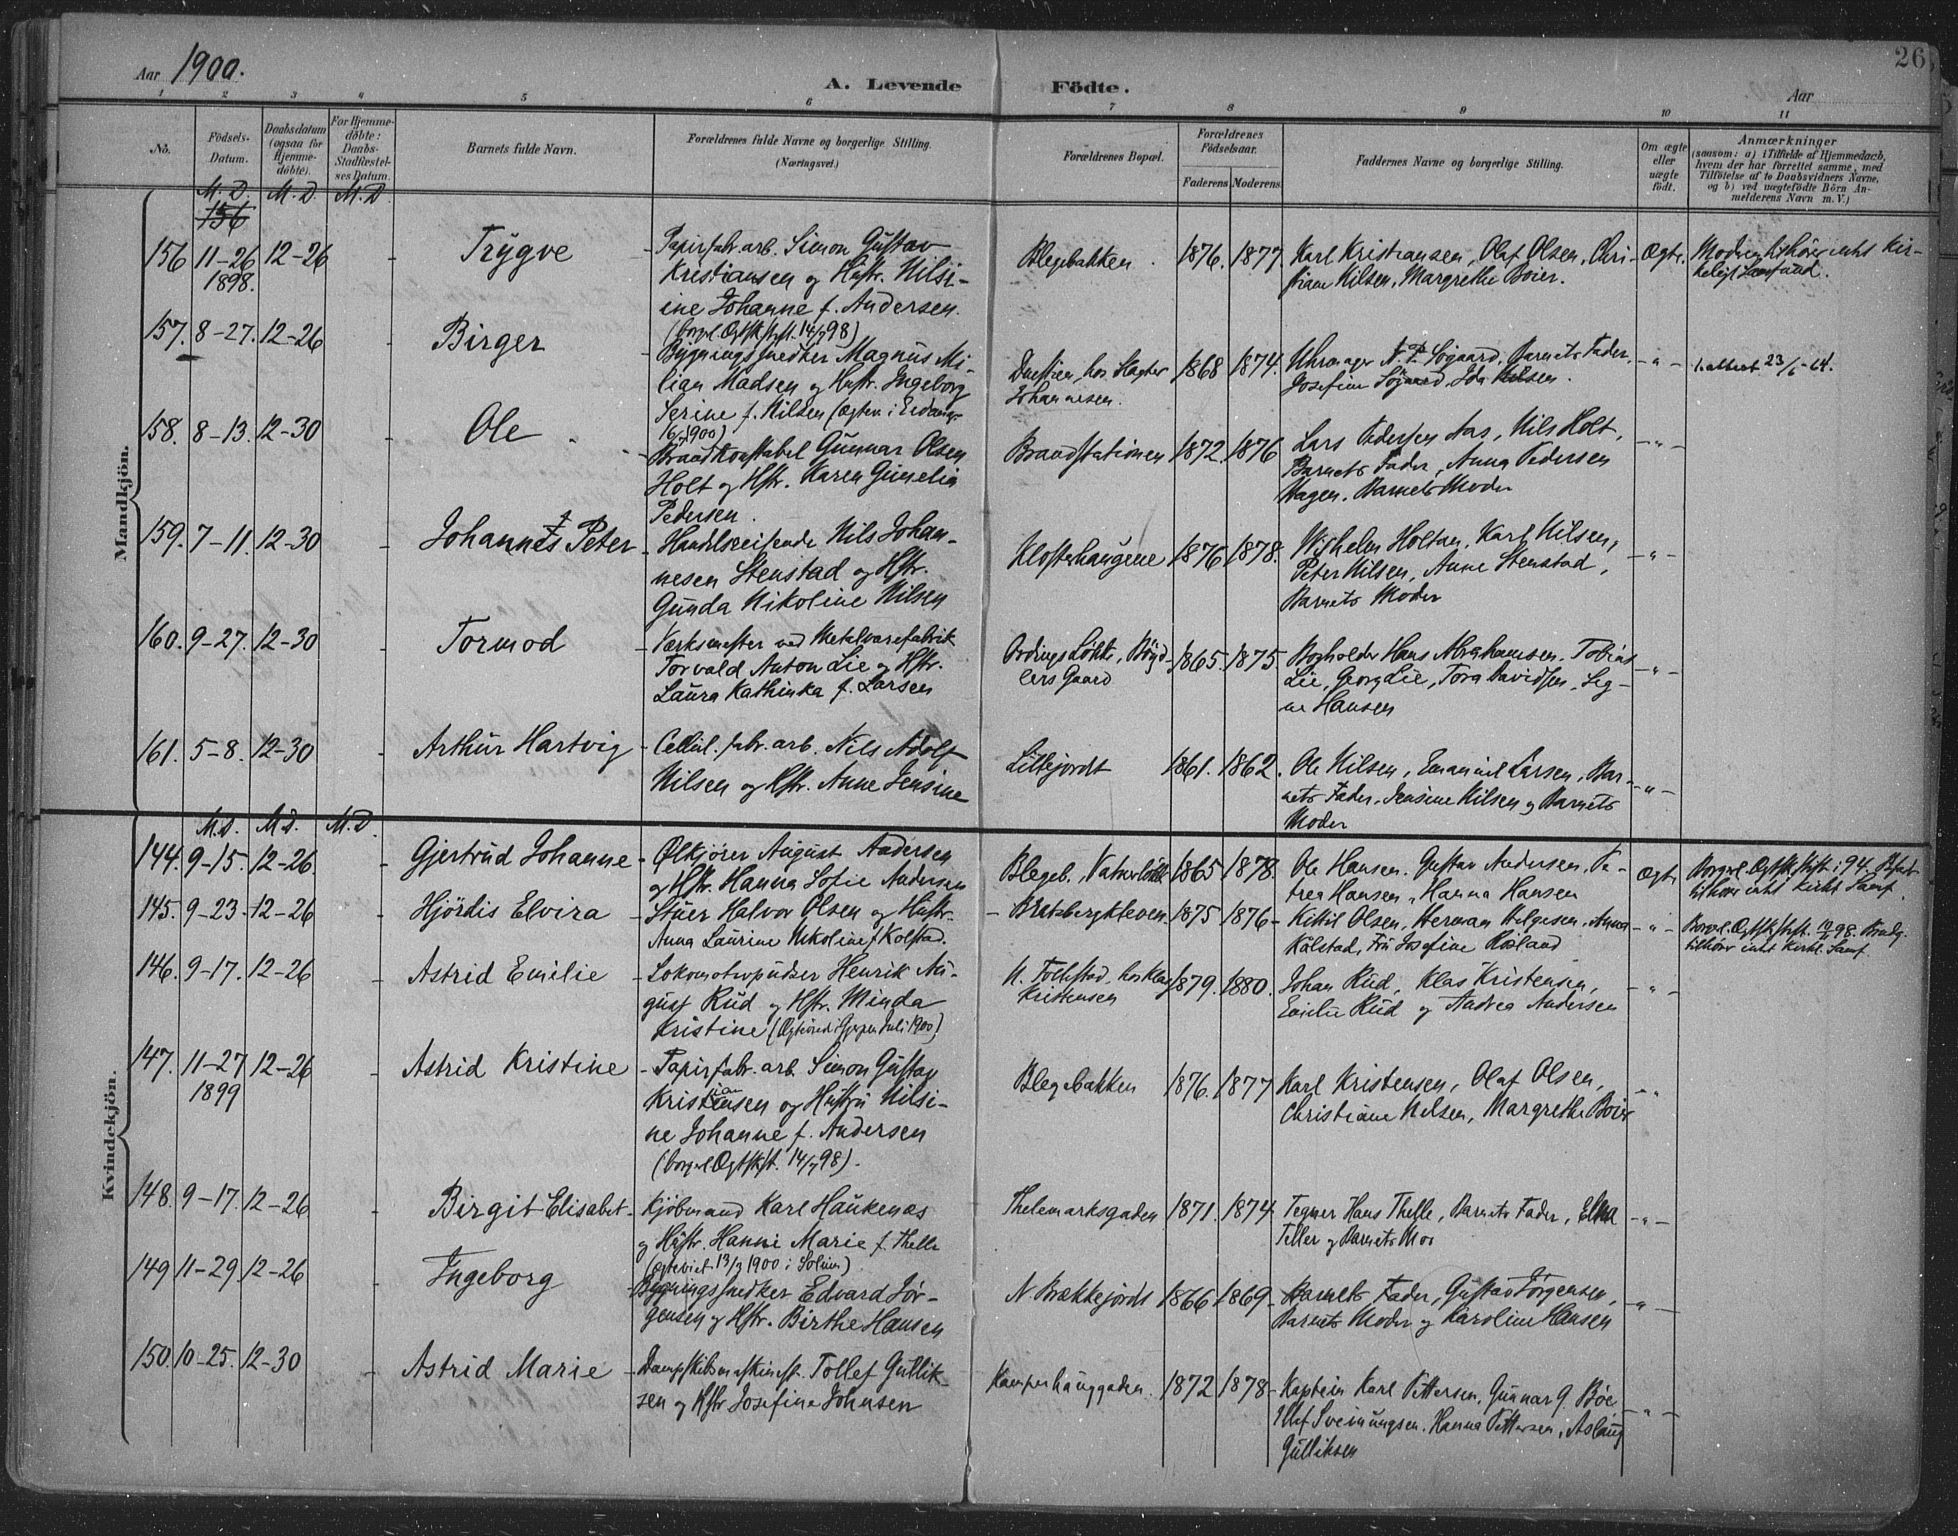 26
Aar 1900.
A. Levende Födte.
Aar
1 2 3 4 5 6 7 8 9 10 11
No.
Födsels-
Datum.
Daabsdatum
(ogsaa for
Hjemme-
döbte).
For Hjemme-
döbte:
Daabs-
Stadfæstel-
ses Datum.
Barnets fulde Navn.
Forældrenes fulde Navne og borgerlige Stilling.
(Næringsvei.)
Forældrenes Bopæl.
Forældrenes
Födselsaar.
Faderens. Moderens.
Faddernes Navne og borgerlige Stilling.
Om ægte
eller
uægte
födt.
Anmærkninger
(saasom: a) i Tilfælde af Hjemmedaab,
hvem der har forrettet samme, med
Tilföielse af to Daabsvidners Navne,
og b) ved uægtefödte Börn An-
melderens Navn m. V.)
Mandkjön.
M. D. M. D. M. D.
156
156 11-26 1898. 12-26 - Trygve
- Papirfabr. arb. Simon Gustav
Kristiansen og Hustr. Nilsi-
ine Johanne f. Andersen.
(borgl. Ægtsk. stift. 14/7 98)
Blegebakken. 1876. 1877.
Karl Kristiansen, Olaf Olsen, Chri-
stiane Nilsen, Margrethe Boier.
Ægte.
Moderen tilhører intet kir-
keligt Samfund.
157. 8-27. 12-26 - Birger
Bygningssnedker Magnus Mi-
lian Madsen og Hustr. Ingeborg
Serine f. Nilsen (Ægtev. i Eidang.
1900)
hos Slagter
Johannesen. 1868 1874.
Uhrmager N. P. Søgaard, Barnets Fader,
Josefine Søgaard, Ida Nilsen.
-"-
23/6-64.
158. 8-13. 12-30 - Ole
- Brandkonstabel Gunnar Olsen
Holt og Hstr. Karen Gunelia
Pedersen.
Brandstationen 1872. 1876
Lars Pedersen Aas, Nils Holt,
Barnets Fader, Anna Pedersen
Hagen. Barnets Moder
-"-
159. 7-11. 12-30 - Johannes Peter
- Handelsreisende Nils Johan-
nesen Stenstad og Hstr.
Gunda Nikoline Nilsen
Klosterhaugene 1876 1878.
Wilhelm Holtan, Karl Nilsen,
Peter Nilsen, Anne Stenstad,
Barnets Moder
-"-
160. 9-27. 12-30 - Tormod
- Værksmester ved Metalvarefabrik
Torvald Anton Lie og Hstr.
Laura Kathinka f. Larsen
Ordings Løkke,
lers Gaard 1865. 1875.
Bogholder Hans Abrahamsen. Tobias
Lie, Georg Lie, Tora Davidsen, Sig-
ne Hansen
-"-
161. 5-8. 12-30 - Arthur Hartvig
- Cellul. fabr. arb. Nils Adolf
Nilsen og Hstr. Anne Jensine
Lillejordt 1861. 1862.
Ole Nilsen, Emanuel Larsen, Bar-
nets Fader, Jensine Nilsen og Barnets
Moder
-"-
Kvindekjön.
M. D. M. D. M. D.
144. 9-15. 12-26. - Gjertrud Johanne
- Ølkjører August Andersen
og Hstr. Hanna Sofie Andersen
Blegeb., 1865 1878.
Ole Hansen. Gustav Andersen, Pe-
trea Hansen, Hanna Hansen
Ægte.
Borgerl. Ægtsk. stift. i 94.
tilhører intet kirkl. Samf.
145. 9-23. 12-26 - Hjördis Elvira
- Stuer Halvor Olsen og Hustr.
Anna Laurine Nikoline f. Kolstad.
- Bratsbergkleven. 1875 1876
- Kittil Olsen, Herman Helgesen, Anna
Kålstad, Fru Josefine Röiland
-"-
Borgl. Ægtsk. stift. 98.
tilhører intet kirkl. Samf.
146. 9-17. 12-26 - Astrid Emilie
- Lokomotivpudser Henrik Au-
gust Rud og Hstr. Minda
Kristine (Ægtviede i Juli 1900)
N. Follestad, hos Klas
Kristensen 1879. 1880.
Johan Rud, Klas Kristensen,
Emilie Rud og Andrea Andersen
-"-
147. 11-27 1899 12-26 - Astrid Kristine
- Papirfabr. arb. Simon Gustav
Kristiansen og Hustru Nilsi-
ne Johanne f. Andersen
(borgl Ægtsk. st. 14/7 98).
Blegebakken 1876. 1877
Karl Kristensen, Olaf Olsen,
Christiane Nilsen, Margrethe Boier
-"-
148. 9-17. 12-26 - Birgit Elisabet
- Kjöbmand Karl Haukenæs
og Hustr. Hanni Marie f. Thelle
(ægteviet 13/3 1900 i Solum)
Thelemarksgaden 1871. 1874
Tegner Hans Thelle, Barnets Fader, Elna
Teller og Barnets Mor
-"-
149 11-29 12-26 - Ingeborg
- Bygningssnedker Edvard Jör-
gensen og Hstr. Birthe Hansen
N Brækkejordt 1866 1869
- Barnets Fader, Gustav Jörgensen,
Barnets Moder og Karoline Hansen
-"-
150. 10-25. 12-30 - Astrid Marie
- Dampskibsmaskinist. Tollef Gullik-
sen og Hstr Josefine Johnsen
Kamperhauggaden. 1872 1878
- Kaptein Karl Pettersen, Gunnar G. Böe
Sveinungsen. Hanna Pettersen, Aslaug
Gulliksen
-"-